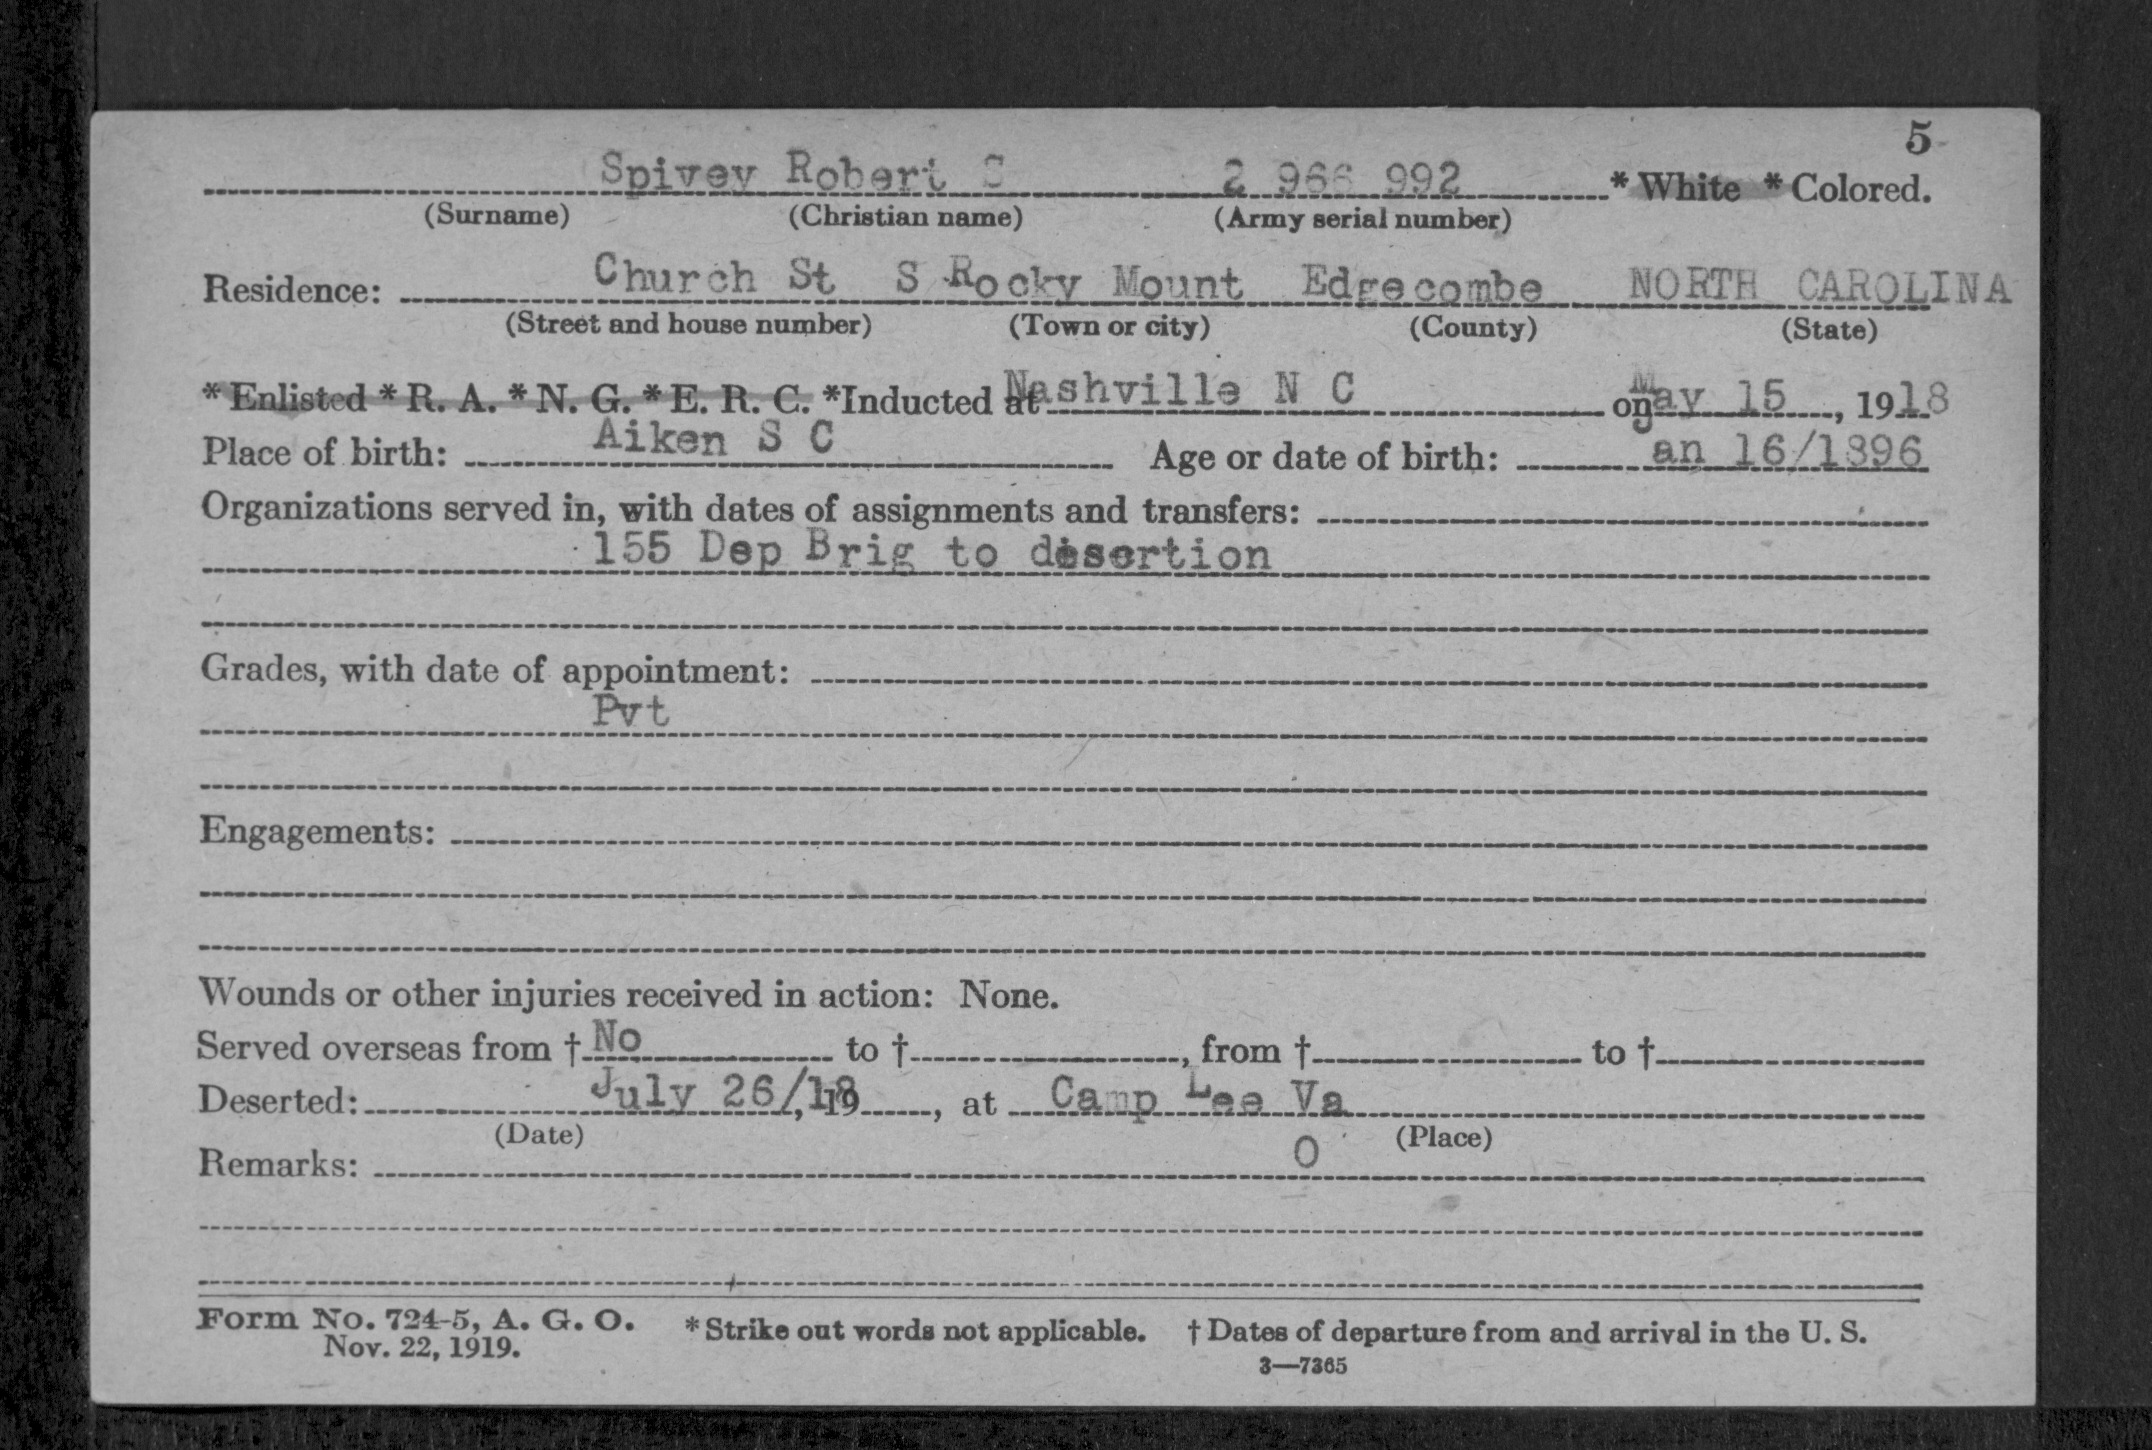 5
Spivey Robert S 2 966 992 * White * Colored.
(Surname) (Christian name) (Army serial number)
Residence: Church St S Rocky Mount Edgecombe NORTH CAROLINA
(Street and house number) (Town or city) (County) (State)
* Enlisted * R. A. * N. G. * E. R. C. *Inducted at Nashville N C on May 15, 1918
Place of birth: Aiken S C Age or date of birth: Jan 16/1896
Organizations served in, with dates of assignments and transfers:
155 Dep Brig to desertion
Grades, with date of appointment:
Pvt
Engagements:
Wounds or other injuries received in action: None.
Served overseas from † No to †, from † to †
Deserted: July 26/18, 19, at Camp Lee Va
(Date) (Place)
Remarks: O
Form No. 724-5, A. G. O. * Strike out words not applicable. † Dates of departure from and arrival in the U. S.
Nov. 22, 1919.
3—7365